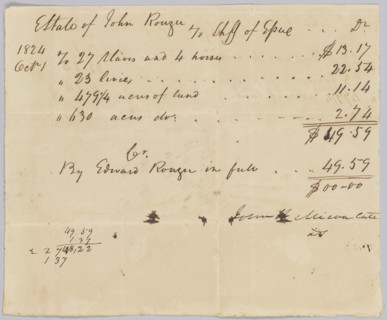 Estate of John Rouzee To Shff of Essex . . . Dr
1824
Octr 1 To 27 Slaves and 4 horses . . . . $13.17
" 23 levies . . . . . . 22.54
" 479¾ acres of land . . . . . 11.14
" 630 acres do: . . . . . 2.74
$49.59
Cr.
By Edward Rouzee in full . . 49.59
$00-00
John
49.59
1 37